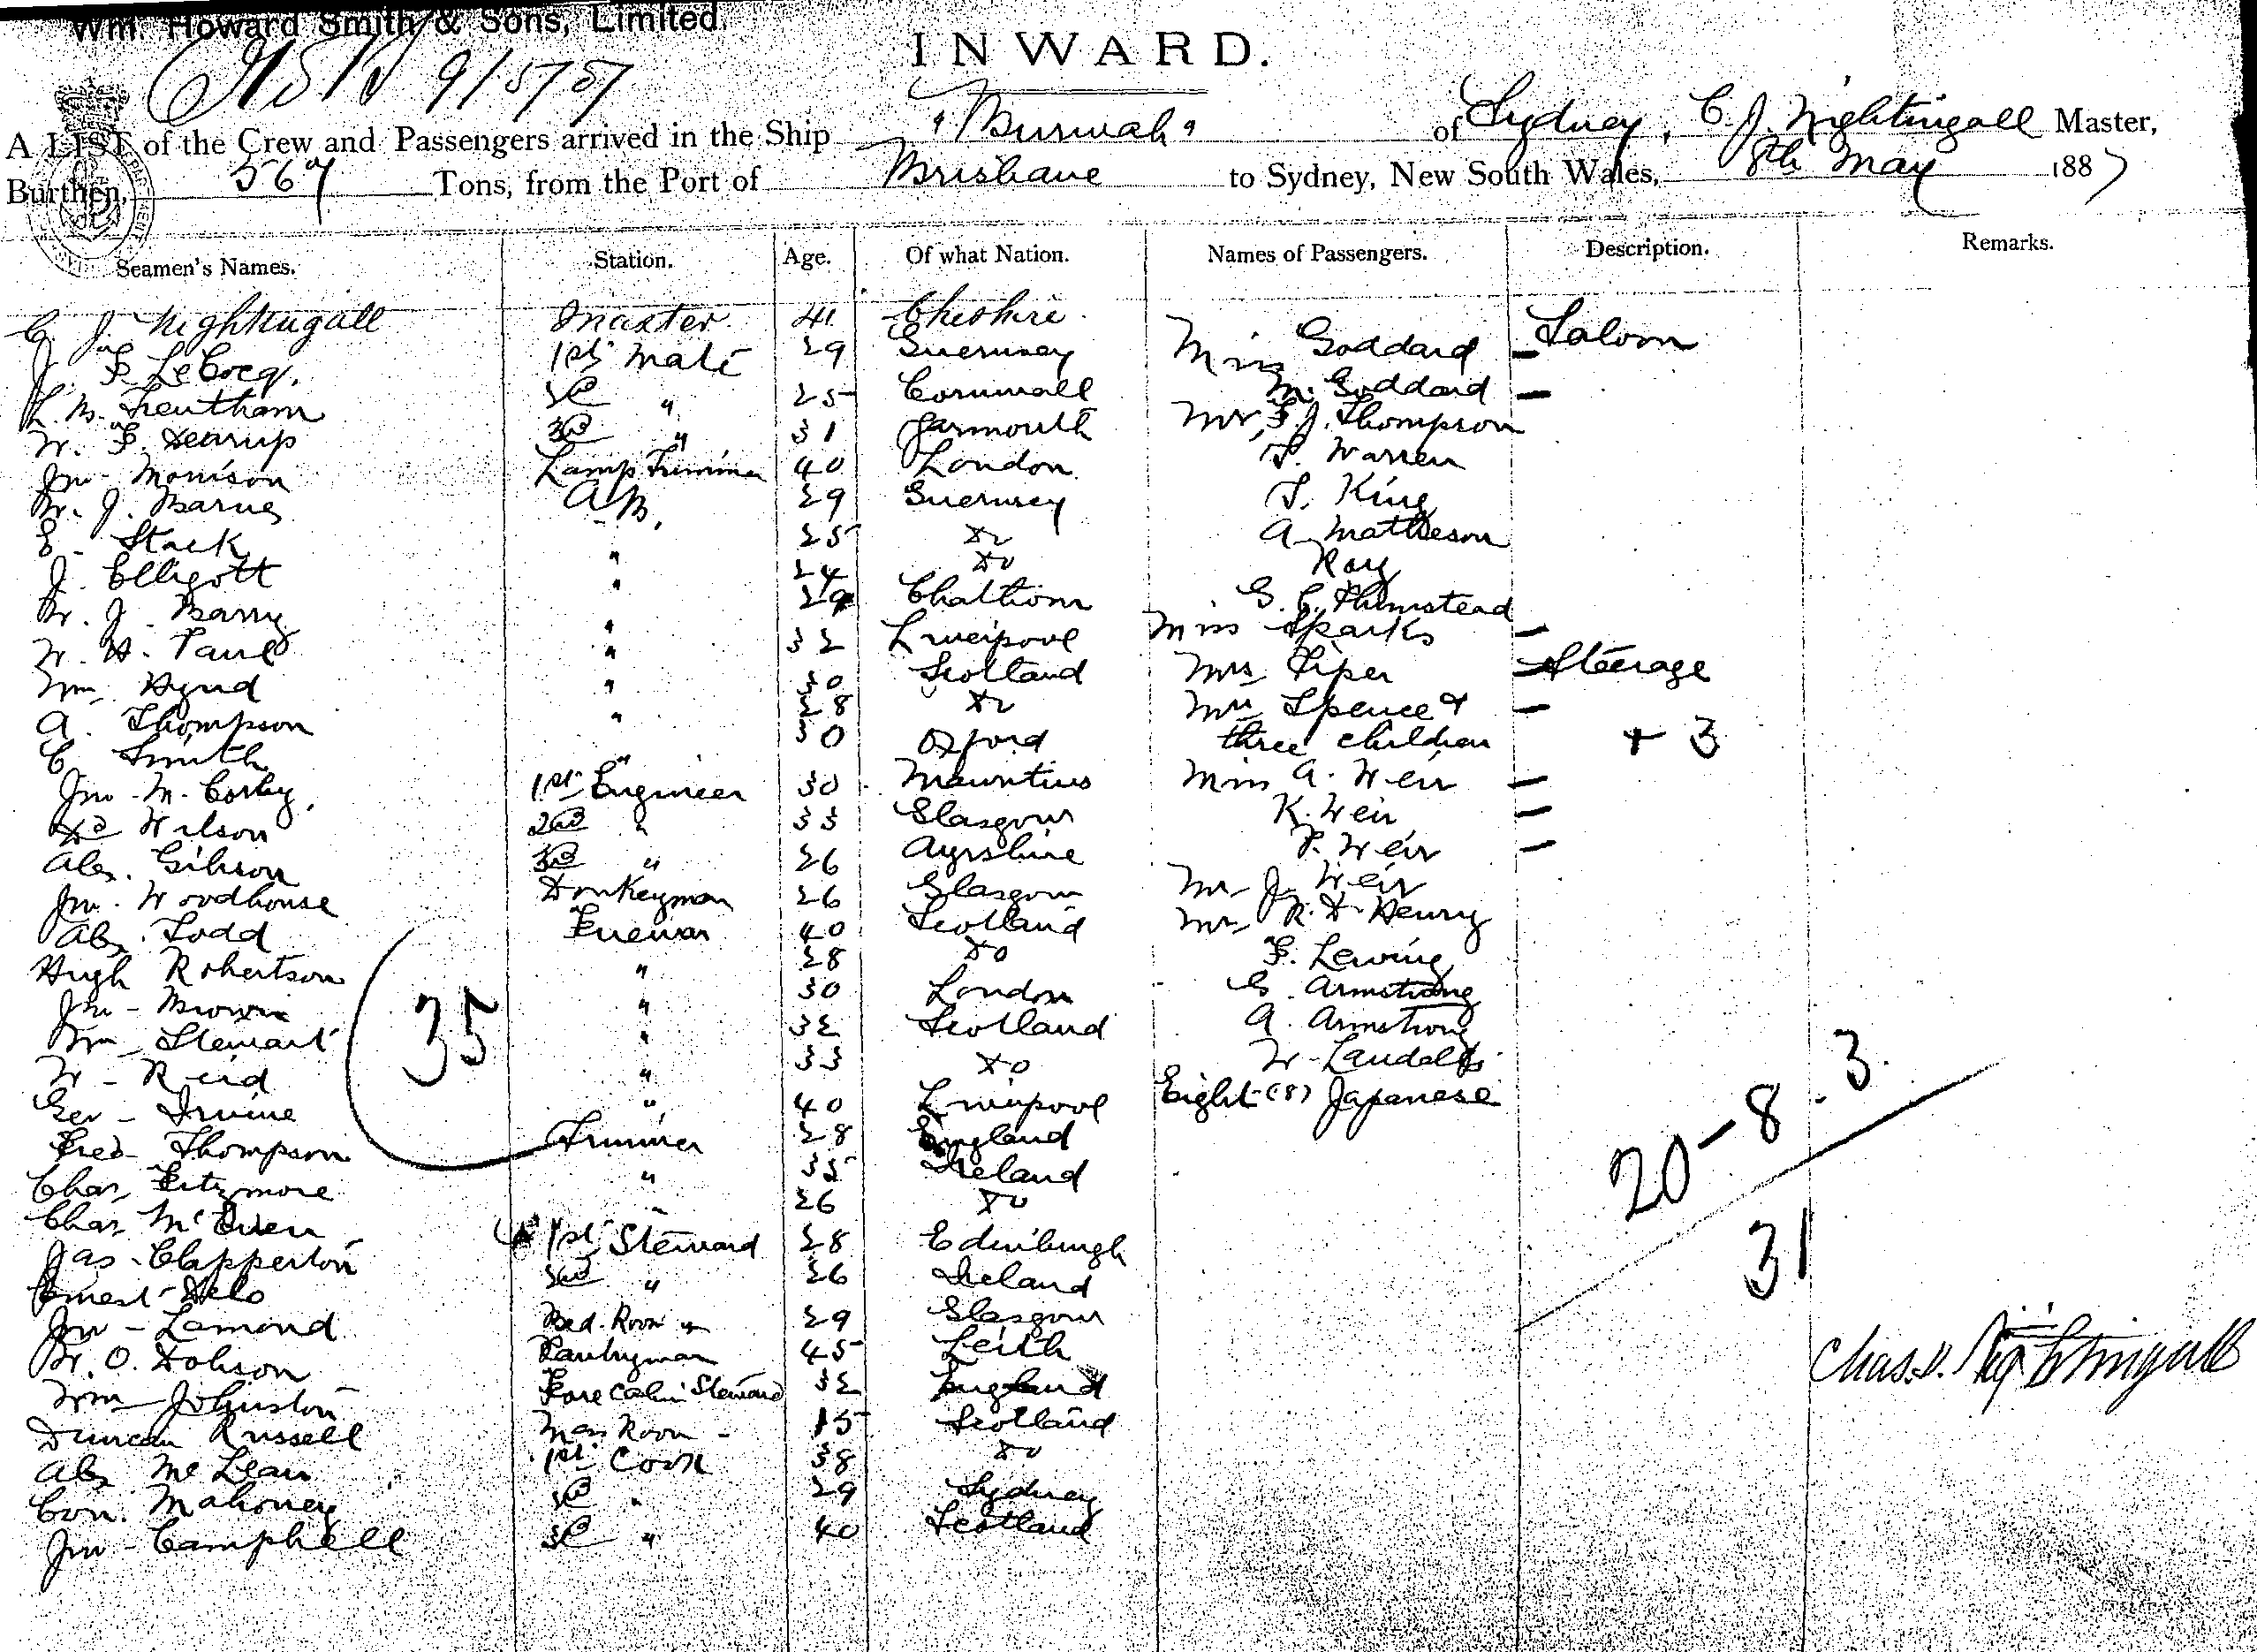 Wm. Howard Smith & Sons, Limited.
INWARD.
9/5/87
A LIST of the Crew and Passengers arrived in the Ship "Burwah" of Sydney, C. J. Nightingall Master,
Burthen, 567 Tons, from the Port of Brisbane to Sydney, New South Wales, 8th May 1887
Seamen's Names. Station. Age. Of what Nation. Names of Passengers. Description. Remarks.
C. J. Nightingall Master 41 Cheshire
J. F. LeCocq. 1st Mate 29 Guernsey Miss Goddard – Saloon
L. M. Trentham 2d " 25 Cornwall M. Goddard –
W. F. 3d " 31 Yarmouth Mr, F. J. Thompson
Jno - Morrison Lamp Trimmer 40 London T. Warren
W. J. Barnes A.B. 29 Guernsey T. King
E - Stack " 25 Do A. Matheson
J. Elligott " 24 Do Ray
W. J. Barry " 29 Chatham G. C.
W. H. Paul " 32 Liverpool Miss Sparks –
Wm Hynd " 30 Scotland Mrs Piper – Steerage
A. Thompson " 28 Do Mrs Spence & –
C Smith " 30 Oxford three children + 3
Jno - M. Corby, 1st Engineer 30 Mauritius Miss A. Weir –
Dd Wilson 2nd " 33 Glasgow K. Weir –
Alex. Gibson 3d " 26 Ayrshire F. Weir –
Jno. Woodhouse Donkeyman 26 Glasgow Mr J. Weir
Alex. Todd Fireman 40 Scotland Mr R. D. Henry
Hugh Robertson " 28 Do F. Lewing
Jno - Brown " 30 London G. Armstrong
Wm Stewart " 32 Scotland A. Armstrong
W - Reid " 33 Do W - Landells
Geo - Irvine " 40 Liverpool Eight (8) Japanese
Fred Thompson Trimmer 28 England
Chas Fitzmore " 35 Ireland
Chas McEwen " 26 Do
Jas - Clapperton 1st Steward 28 Edinburgh
Ernest 2nd " 26 Ireland
Jno - Lamond Bed Room " 29 Glasgow
W. O. Dobson Pantryman 45 Leith
Wm Johnston Fore Cabin Steward 32 England
Duncan Russell Mess Room - 15 Scotland
Alex McLean 1st Cook 38 Do
Con. Mahoney 2d " 29 Sydney
Jno - Campbell 3d " 40 Scotland
35
20 - 8 - 3
31
Chas. J. Nightingall